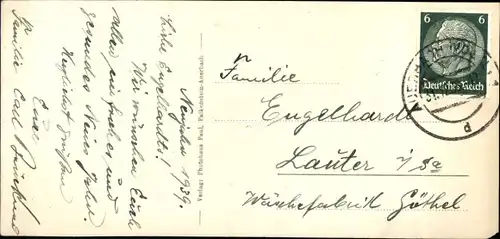 Neujahr 1939.
Liebe Engelhardts!
Wir wünschen Euch
allen ein frohes und
gesundes Neues Jahr!
Herzlichst grüßen
Eure
Familie Carl
Verlag: Photohaus Punk, Falkenstein-Auerbach.
6 6
Deutsches Reich
AUERBACH (VOGTL)
d
Familie
Engelhardt
Lauter i/Sa
Wäschefabrik Göthel